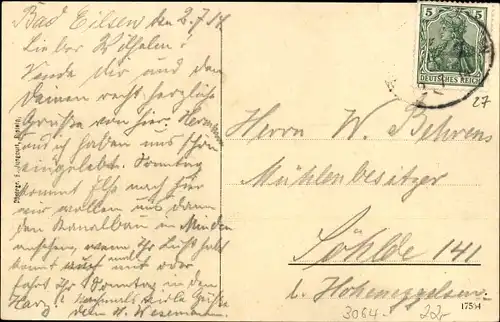 Bad Eilsen den 2.7.14.
Lieber Wilhelm!
Sende Dir und den
Deinen recht herzliche
Grüße von hier. Hermann
und ich haben uns schön
eingelebt. Sonntag
kommt Ilse nach hier
wir wollen uns dann
den Kanalbau in Minden
ansehen, wenn Ihr Lust habt
kommt auch mit oder
fahrt Ihr Sonntag in den
Harz? Nochmals viele Grüße
dein H. Wesemann.
5 5
DEUTSCHES REICH
27
Herrn W. Behrens
Mühlenbesitzer
Söhlde 141
b. Hoheneggelsen
17534
3064